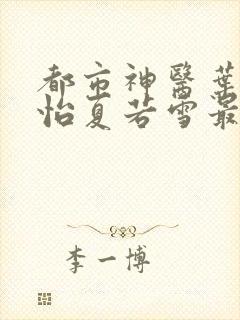 都市神醫葉
怡夏若雪最
李一博